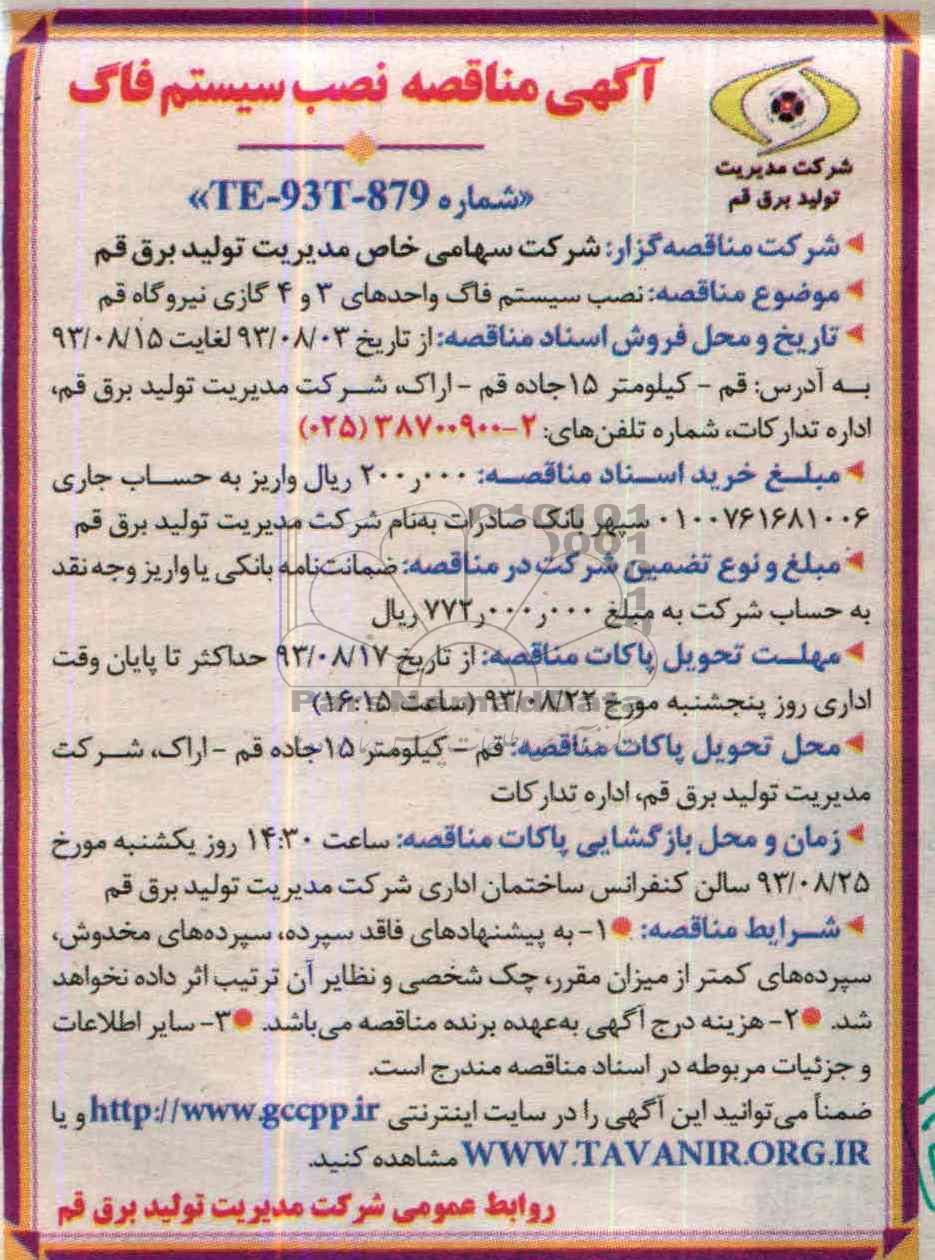 آگهی مناقصه نصب سیستم فاگ
شرکت مدیریت
تولید برق قم
«شماره TE-93T-879»
شرکت مناقصه‌گزار: شرکت سهامی خاص مدیریت تولید برق قم
موضوع مناقصه: نصب سیستم فاگ واحدهای ۳ و ۴ گازی نیروگاه قم
تاریخ و محل فروش اسناد مناقصه: از تاریخ ۹۳/۰۸/۰۳ لغایت ۹۳/۰۸/۱۵
به آدرس: قم - کیلومتر ۱۵جاده قم - اراک، شرکت مدیریت تولید برق قم،
اداره تدارکات، شماره تلفن‌های: ۲-۳۸۷۰۰۹۰۰ (۰۲۵)
مبلغ خرید اسناد مناقصه: ۲۰۰ر۰۰۰ ریال واریز به حساب جاری
۰۱۰۰۷۶۱۶۸۱۰۰۶ سپهر بانک صادرات به‌نام شرکت مدیریت تولید برق قم
مبلغ و نوع تضمین شرکت در مناقصه: ضمانت‌نامه بانکی یا واریز وجه نقد
به حساب شرکت به مبلغ ۷۷۲ر۰۰۰ر۰۰۰ ریال
مهلت تحویل پاکات مناقصه: از تاریخ ۹۳/۰۸/۱۷ حداکثر تا پایان وقت
اداری روز پنجشنبه مورخ ۹۳/۰۸/۲۲ (ساعت ۱۶:۱۵)
ParsNamadData
محل تحویل پاکات مناقصه: قم - کیلومتر ۱۵جاده قم - اراک، شرکت
مدیریت تولید برق قم، اداره تدارکات
زمان و محل بازگشایی پاکات مناقصه: ساعت ۱۴:۳۰ روز یکشنبه مورخ
۹۳/۰۸/۲۵ سالن کنفرانس ساختمان اداری شرکت مدیریت تولید برق قم
شرایط مناقصه: ۱- به پیشنهادهای فاقد سپرده، سپرده‌های مخدوش،
سپرده‌های کمتر از میزان مقرر، چک شخصی و نظایر آن ترتیب اثر داده نخواهد
شد. ۲- هزینه درج آگهی به‌عهده برنده مناقصه می‌باشد. ۳- سایر اطلاعات
و جزئیات مربوطه در اسناد مناقصه مندرج است.
ضمناً می‌توانید این آگهی را در سایت اینترنتی http://www.gccpp.ir و یا
WWW.TAVANIR.ORG.IR مشاهده کنید.
روابط عمومی شرکت مدیریت تولید برق قم